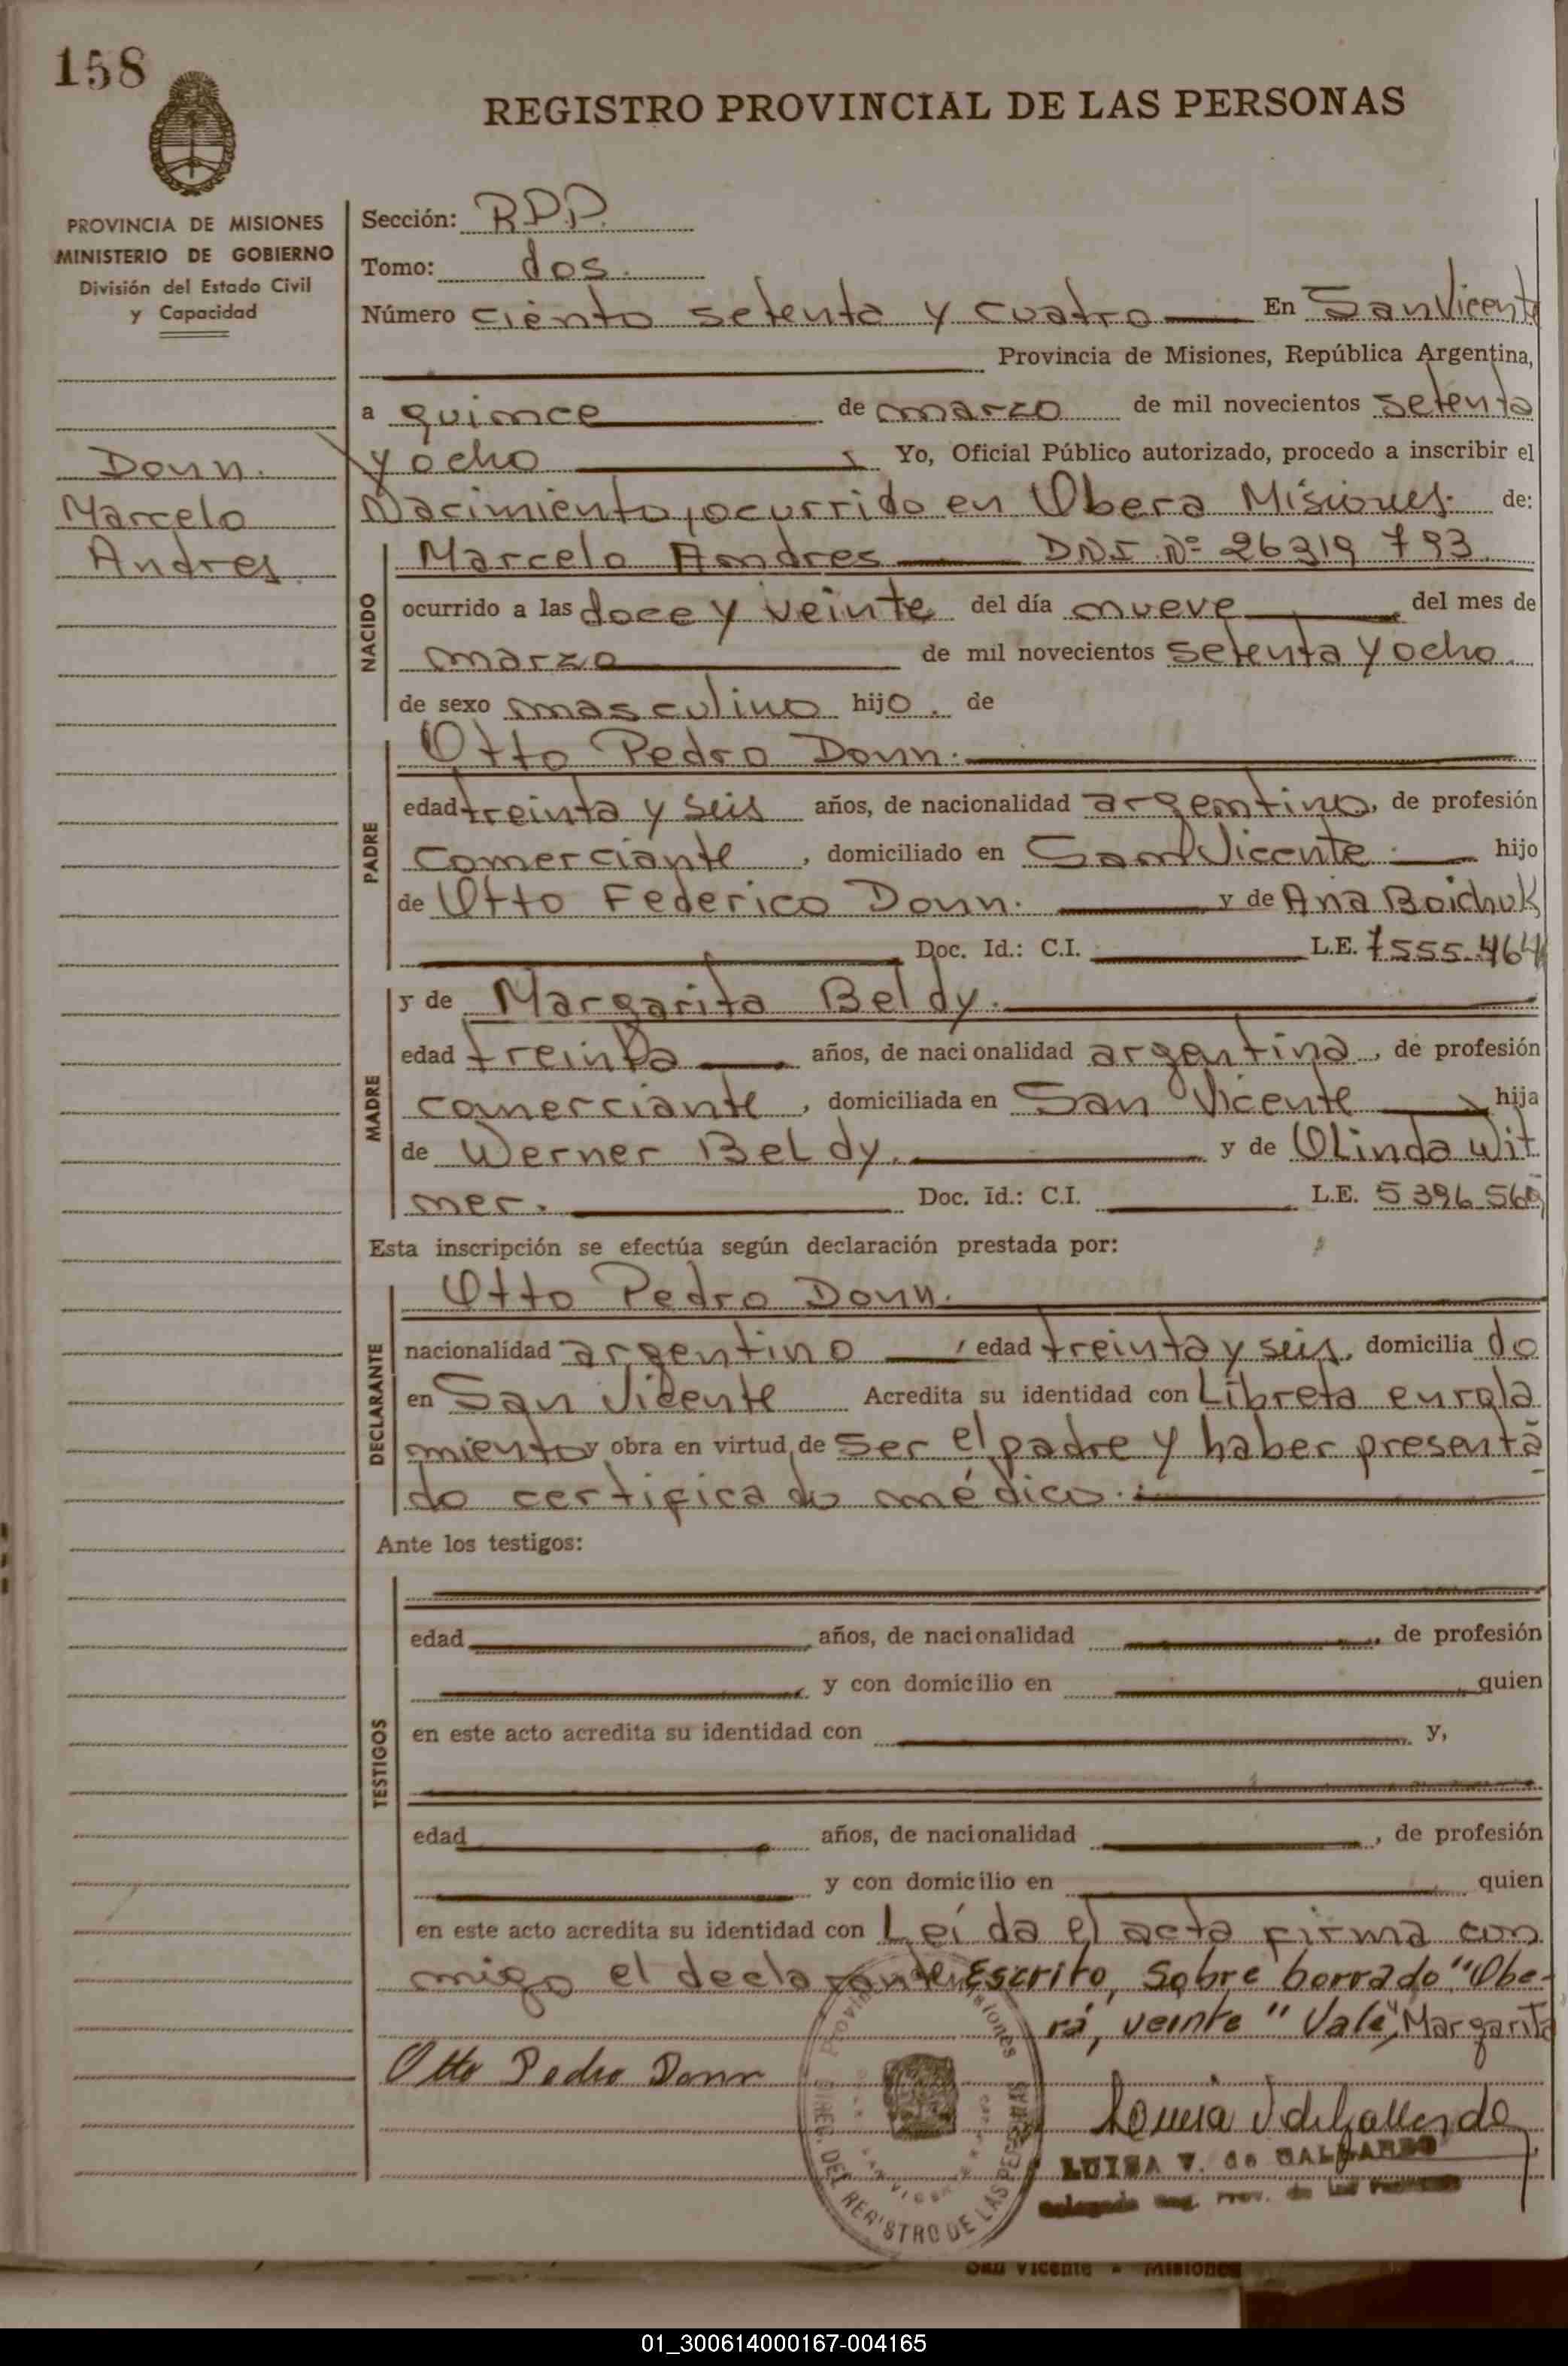 158
REGISTRO PROVINCIAL DE LAS PERSONAS
PROVINCIA DE MISIONES
MINISTERIO DE GOBIERNO
División del Estado Civil
y Capacidad
Donn.
Marcelo
Andres
Sección: R.P.P.
Tomo: dos.
Número ciento setenta y cuatro En San Vicente
Provincia de Misiones, República Argentina,
a quince de marzo de mil novecientos setenta
y ocho Yo, Oficial Público autorizado, procedo a inscribir el
Nacimiento, ocurrido en Obera Misiones. de:
NACIDO
Marcelo Andres DNI Nº 26319 793
ocurrido a las doce y veinte del día nueve del mes de
marzo de mil novecientos setenta y ocho.
de sexo masculino hijo. de
PADRE
Otto Pedro Donn.
edad treinta y seis años, de nacionalidad argentino, de profesión
comerciante, domiciliado en San Vicente. hijo
de Otto Federico Donn. y de Ana Boichuk
Doc. Id.: C.I. L.E. 7555.464
MADRE
y de Margarita Beldy.
edad treinta años, de nacionalidad argentina, de profesión
comerciante, domiciliada en San Vicente hija
de Werner Beldy. y de Olinda Wit
mer. Doc. Id.: C.I. L.E.
Esta inscripción se efectúa según declaración prestada por:
DECLARANTE
Otto Pedro Donn.
nacionalidad argentino, edad treinta y seis, domicilia do
en San Vicente Acredita su identidad con Libreta enrola
miento y obra en virtud de ser el padre y haber presenta
do certificado médico.
Ante los testigos:
TESTIGOS
edad años, de nacionalidad , de profesión
y con domicilio en , quien
en este acto acredita su identidad con y,
edad años, de nacionalidad , de profesión
y con domicilio en quien
en este acto acredita su identidad con Leída el acta firma con
migo el declarante. Escrito, Sobre borrado "Obe-
rá, veinte" Vale, Margarita
Otto Pedro Donn
LUISA V. de GALLARDO
DIREC. DEL REGISTRO DE LAS PERSONAS
San Vicente - Misiones
01_300614000167-004165